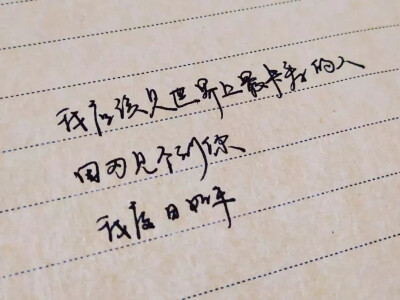 我应该是世界上最幸运的人
因为见不到你
我度日如年